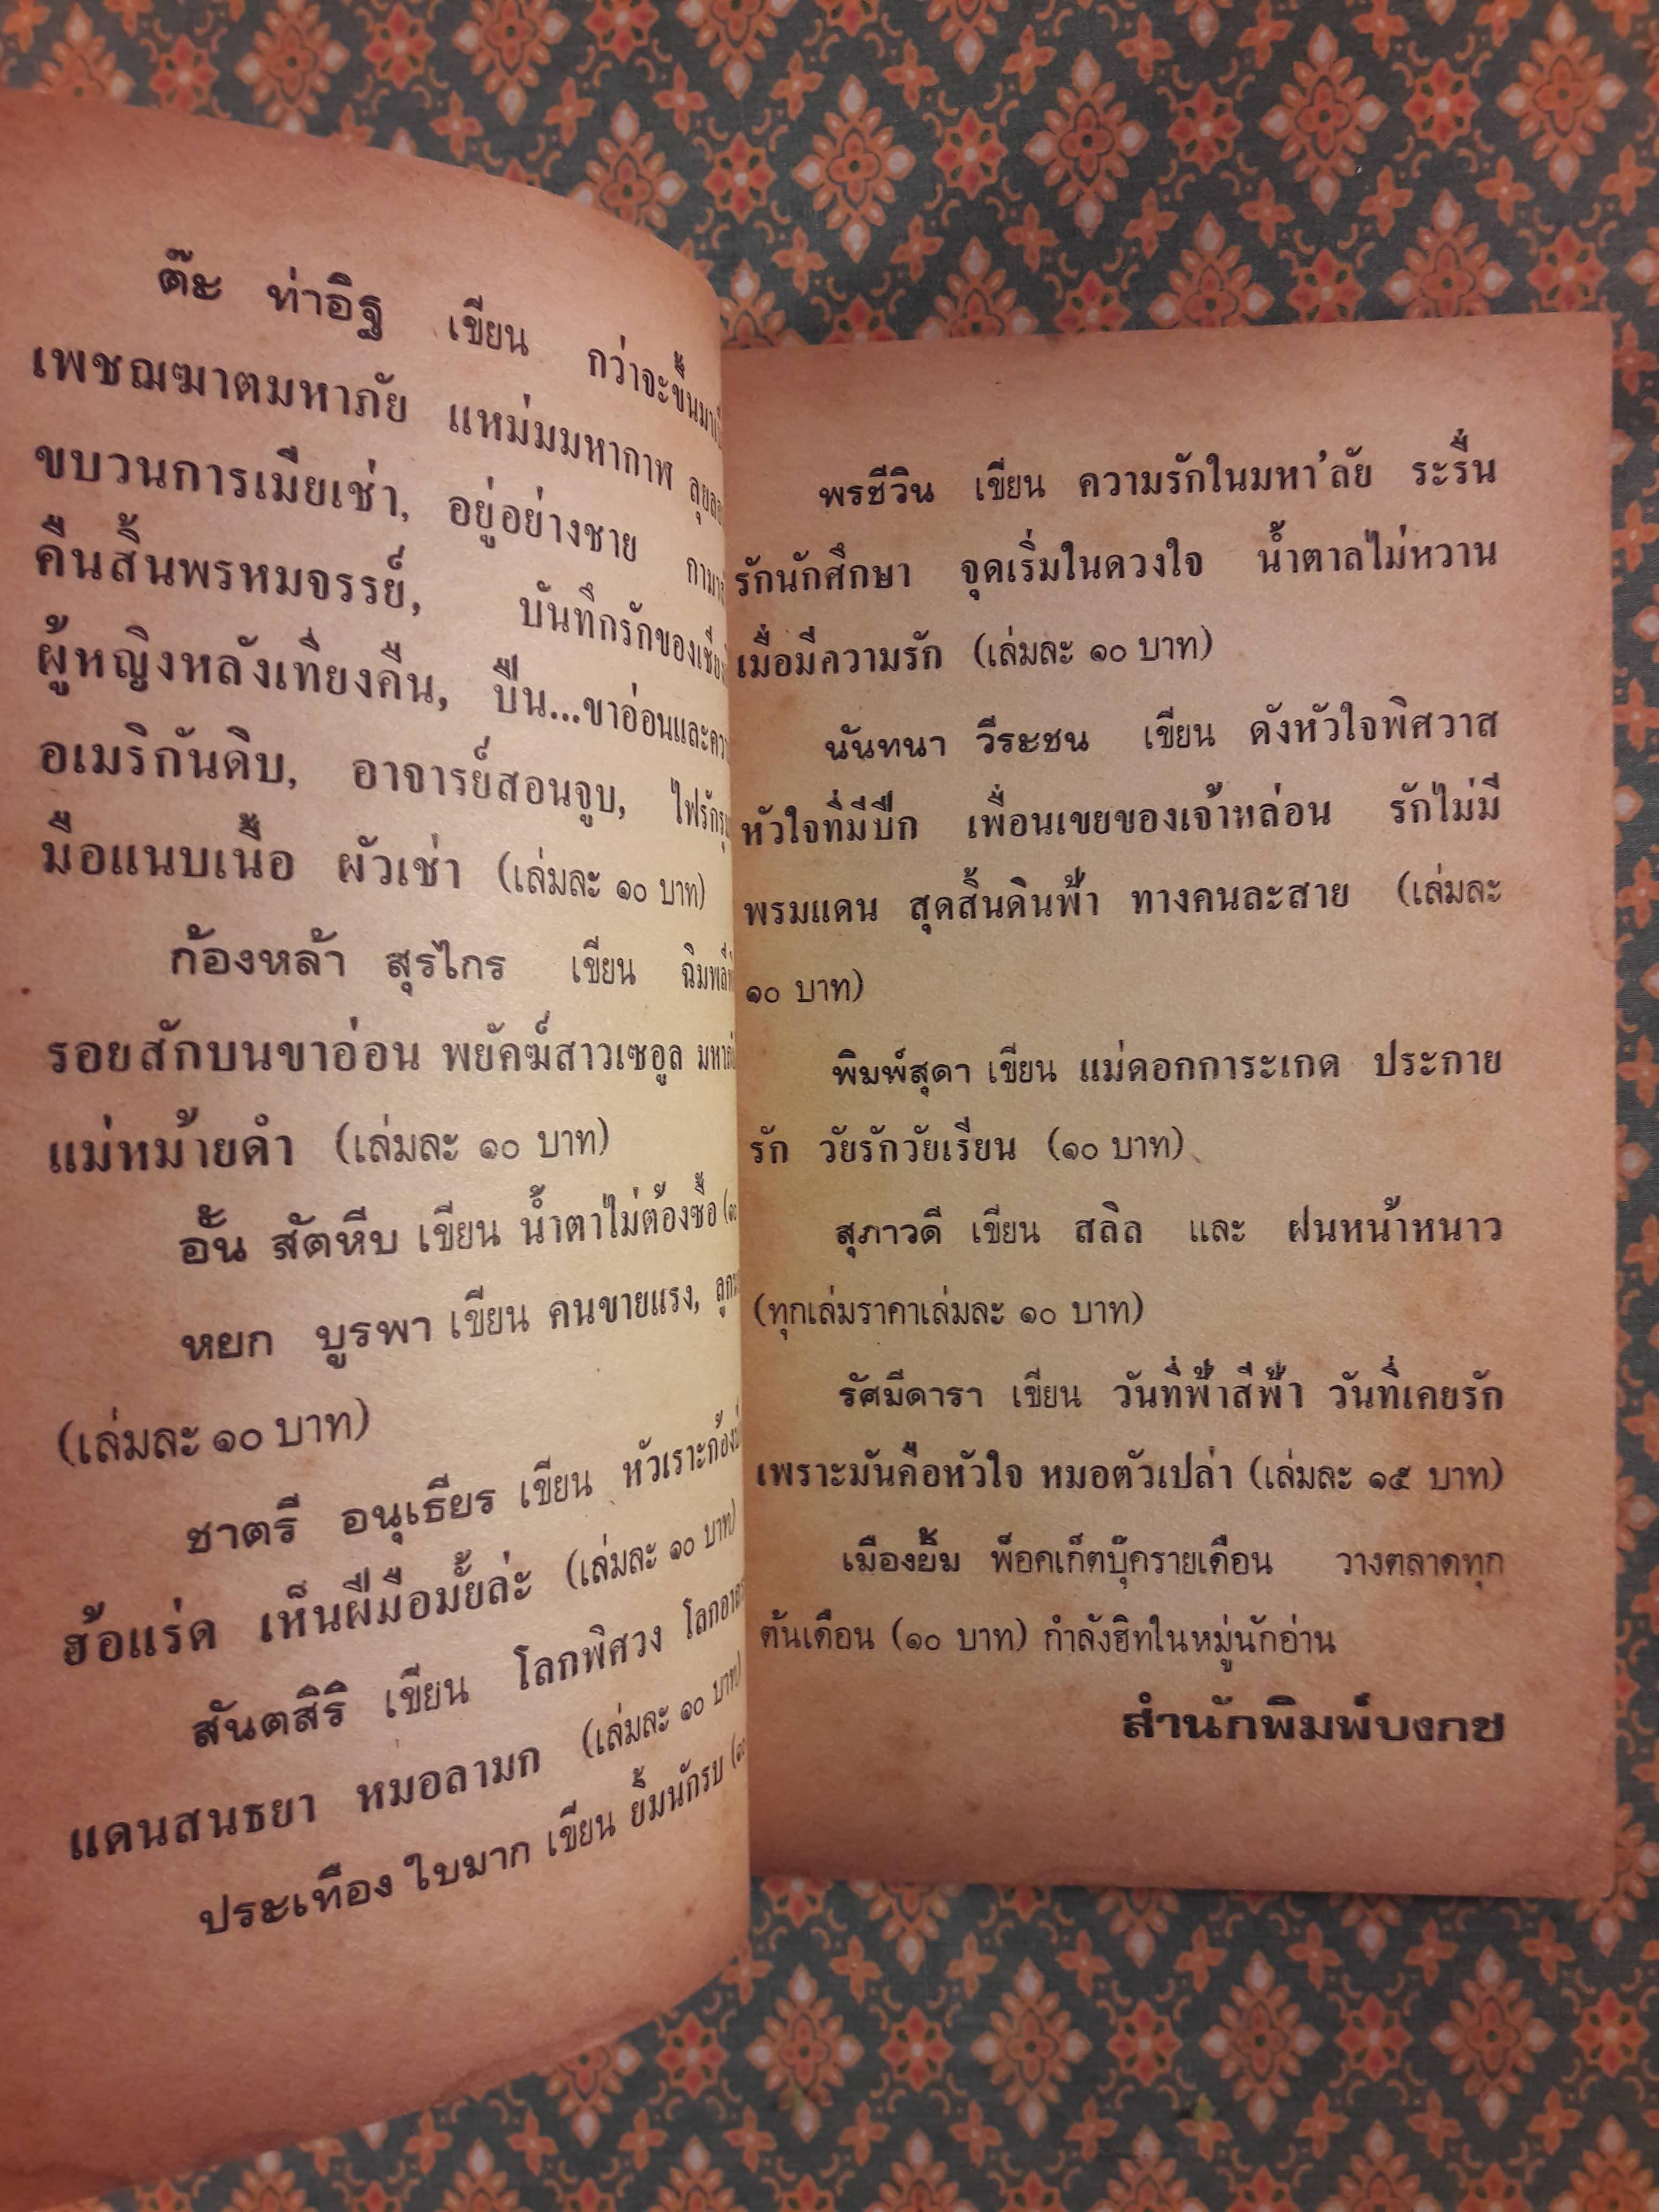 ต๊ะ ท่าอิฐ เขียน กว่าจะขึ้นมา
เพชฌฆาตมหาภัย แหม่มมหากาฬ
ขบวนการเมียเช่า, อยู่อย่างชาย
คืนสิ้นพรหมจรรย์, บันทึกรักของ
ผู้หญิงหลังเที่ยงคืน, ปืน...ขาอ่อนและ
อเมริกันดิบ, อาจารย์สอนจูบ, ไฟรัก
มือแนบเนื้อ ผัวเช่า (เล่มละ ๑๐ บาท)
ก้องหล้า สุรไกร เขียน
รอยสักบนขาอ่อน พยัคฆ์สาวเซอูล
แม่หม้ายดำ (เล่มละ ๑๐ บาท)
อั๋น สัตหีบ เขียน น้ำตาไม่ต้องซื้อ
หยก บูรพา เขียน คนขายแรง,
(เล่มละ ๑๐ บาท)
ชาตรี อนุเธียร เขียน หัวเราะก้อง
ฮ้อแร่ด เห็นผีมือมั้ยล่ะ (เล่มละ ๑๐ บาท)
สันตสิริ เขียน โลกพิศวง
แดนสนธยา หมอลามก (เล่มละ ๑๐ บาท)
ประเทือง ใบมาก เขียน ยิ้มนักรบ
พรชีวิน เขียน ความรักในมหา'ลัย ระรื่น
รักนักศึกษา จุดเริ่มในดวงใจ น้ำตาลไม่หวาน
เมื่อมีความรัก (เล่มละ ๑๐ บาท)
นันทนา วีระชน เขียน ดังหัวใจพิศวาส
หัวใจที่มีปีก เพื่อนเขยของเจ้าหล่อน รักไม่มี
พรมแดน สุดสิ้นดินฟ้า ทางคนละสาย (เล่มละ
๑๐ บาท)
พิมพ์สุดา เขียน แม่ดอกการะเกด ประกาย
รัก วัยรักวัยเรียน (๑๐ บาท)
สุภาวดี เขียน สลิล และ ฝนหน้าหนาว
(ทุกเล่มราคาเล่มละ ๑๐ บาท)
รัศมีดารา เขียน วันที่ฟ้าสีฟ้า วันที่เคยรัก
เพราะมันคือหัวใจ หมอตัวเปล่า (เล่มละ ๑๕ บาท)
เมืองยิ้ม พ็อคเก็ตบุ๊ครายเดือน วางตลาดทุก
ต้นเดือน (๑๐ บาท) กำลังฮิทในหมู่นักอ่าน
สำนักพิมพ์บงกช